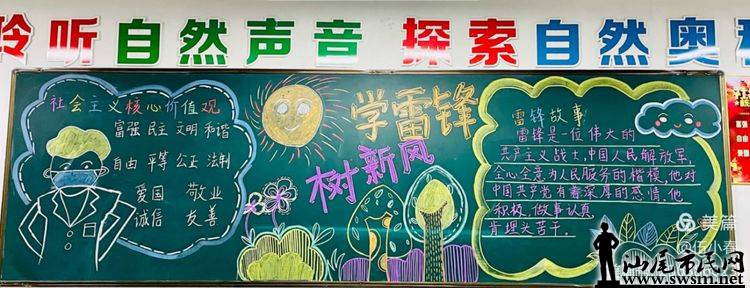 聆听自然声音 探索自然奥
社会主义核心价值观
富强 民主 文明 和谐
自由 平等 公正 法制
爱国 敬业
诚信 友善
学雷锋
树新风
雷锋故事
雷锋是一位伟大的
共产主义战士,中国人民解放军,
全心全意为人民服务的楷模,他对
中国共产党有着深厚的感情,他
积极做事认真
肯埋头苦干。
美篇
@伍小春
汕尾市民网
www.swsm.net